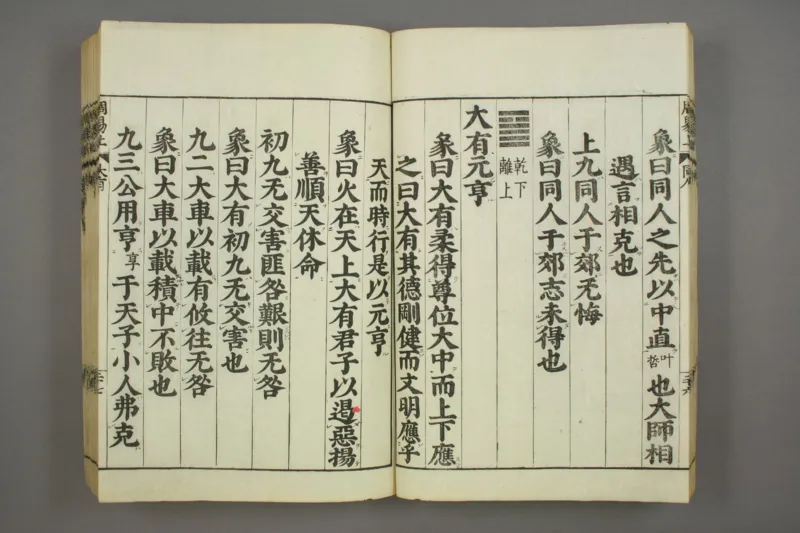 象曰同人之先以中直叶哲也大師相
遇言相克也
上九同人于郊无悔
象曰同人于郊志未得也
乾下
離上
大有元亨
彖曰大有柔得尊位大中而上下應
之曰大有其德剛健而文明應乎
天而時行是以元亨
象曰火在天上大有君子以遏惡揚
善順天休命
初九无交害匪咎艱則无咎
象曰大有初九无交害也
九二大車以載有攸往无咎
象曰大車以載積中不敗也
九三公用亨享于天子小人弗克
周易上
大有